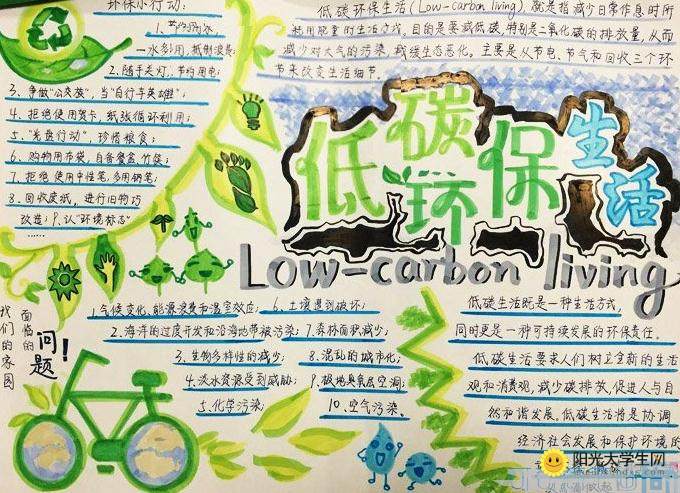 环保小行动:
1、节约用水,
一水多用,抵制浪费;
2、随手关灯,节约用电;
3、争做“公交族”,当“自行车英雄”;
4、拒绝使用贺卡,纸张循环利用;
5、“光盘行动”,珍惜粮食;
6、购物用布袋,自备餐盒、竹筷;
7、拒绝使用中性笔,多用钢笔;
8、回收废纸,进行旧物巧
改造;9、认“环境标志”
……
低碳环保生活(Low-carbon living),就是指减少日常作息时所
耗用能量的生活方式,目的是要减低碳,特别是二氧化碳的排放量,从而
减少对大气的污染,减缓生态恶化。主要是从节电、节气和回收三个环
节来改变生活细节。
低碳环保生活
Low-carbon living
我们的家园
面临的
问题!
1、气候变化、能源浪费和温室效应;6、土壤遭到破坏;
2、海洋的过度开发和沿海地带被污染;7、森林面积减少;
3、生物多样性的减少;8、混乱的城市化;
4、淡水资源受到威胁;9、极地臭氧层空洞;
5、化学污染;10、空气污染。
低碳生活既是一种生活方式,
同时更是一种可持续发展的环保责任。
低碳生活要求人们树立全新的生活
观和消费观,减少碳排放,促进人与自
然和谐发展。低碳生活将是协调
经济社会发展和保护环境的
阳光大学生网